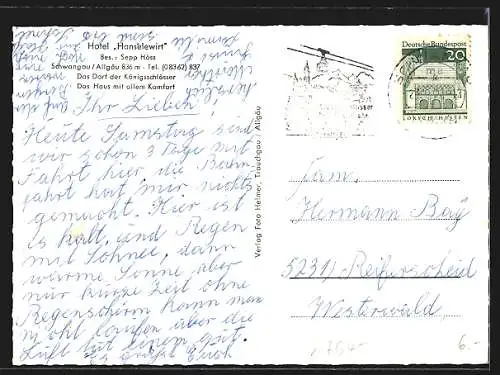 Hotel „Hanselewirt"
Bes.: Sepp Höss
Schwangau / Allgäu 836 m - Tel. (08362) 837
Das Dorf der Königsschlösser
Das Haus mit allem Komfort
Ihr Lieben!
Heute Samstag sind
wir schon 3 Tage mit
Fahrt hier, die Bahn-
fahrt hat mir nichts
gemacht. Hier ist
es kalt, und Regen
mit Schnee, dann
warme Sonne aber
nur kurze Zeit ohne
Regenschirm kann man
wohl laufen aber die
Luft tut einem gut.
Es grüßt Euch
Verlag Foto Helmer, Trauchgau / Allgäu
Deutsche Bundespost
20
LORSCH/HESSEN
Fam.
Hermann Bay
5231 Reiferscheid
Westerwald
6.-